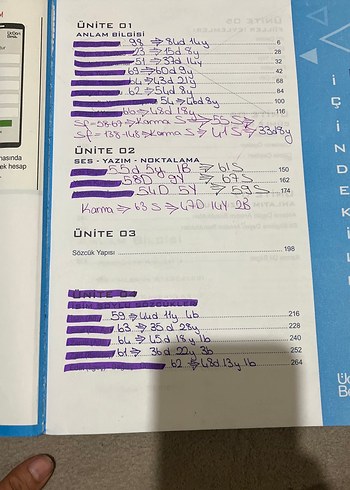 ÜNİTE 01
ANLAM BİLGİSİ
98 ⇒ 84d 14y 6
23 ⇒ 15d 8y 28
51 ⇒ 37d 14y 32
69 ⇒ 60d 9y 42
64 ⇒ 43d 21y 68
62 ⇒ 54d 8y 84
54 ⇒ 46d 8y 100
66 ⇒ 48d 18y 116
Karma S ⇒ 55S
Sf = 138-148 ⇒ Karma S ⇒ 41S ⇒ 33d8y
ÜNİTE 02
SES - YAZIM - NOKTALAMA
55d 5y 1B ⇒ 61S 150
58D 9Y ⇒ 67S 162
54D 5Y ⇒ 59S 174
Karma ⇒ 63S ⇒ 47D 14Y 2B
ÜNİTE 03
Sözcük Yapısı 198
ÜNİTE
İSİM SOYLU SÖZCÜKLER
59 ⇒ 44d 11y 4b 216
63 ⇒ 35d 28y 228
64 ⇒ 45d 18y 1b 240
61 ⇒ 36d 22y 3b 252
62 ⇒ 48d 13y 1b 264
İÇİNDEK